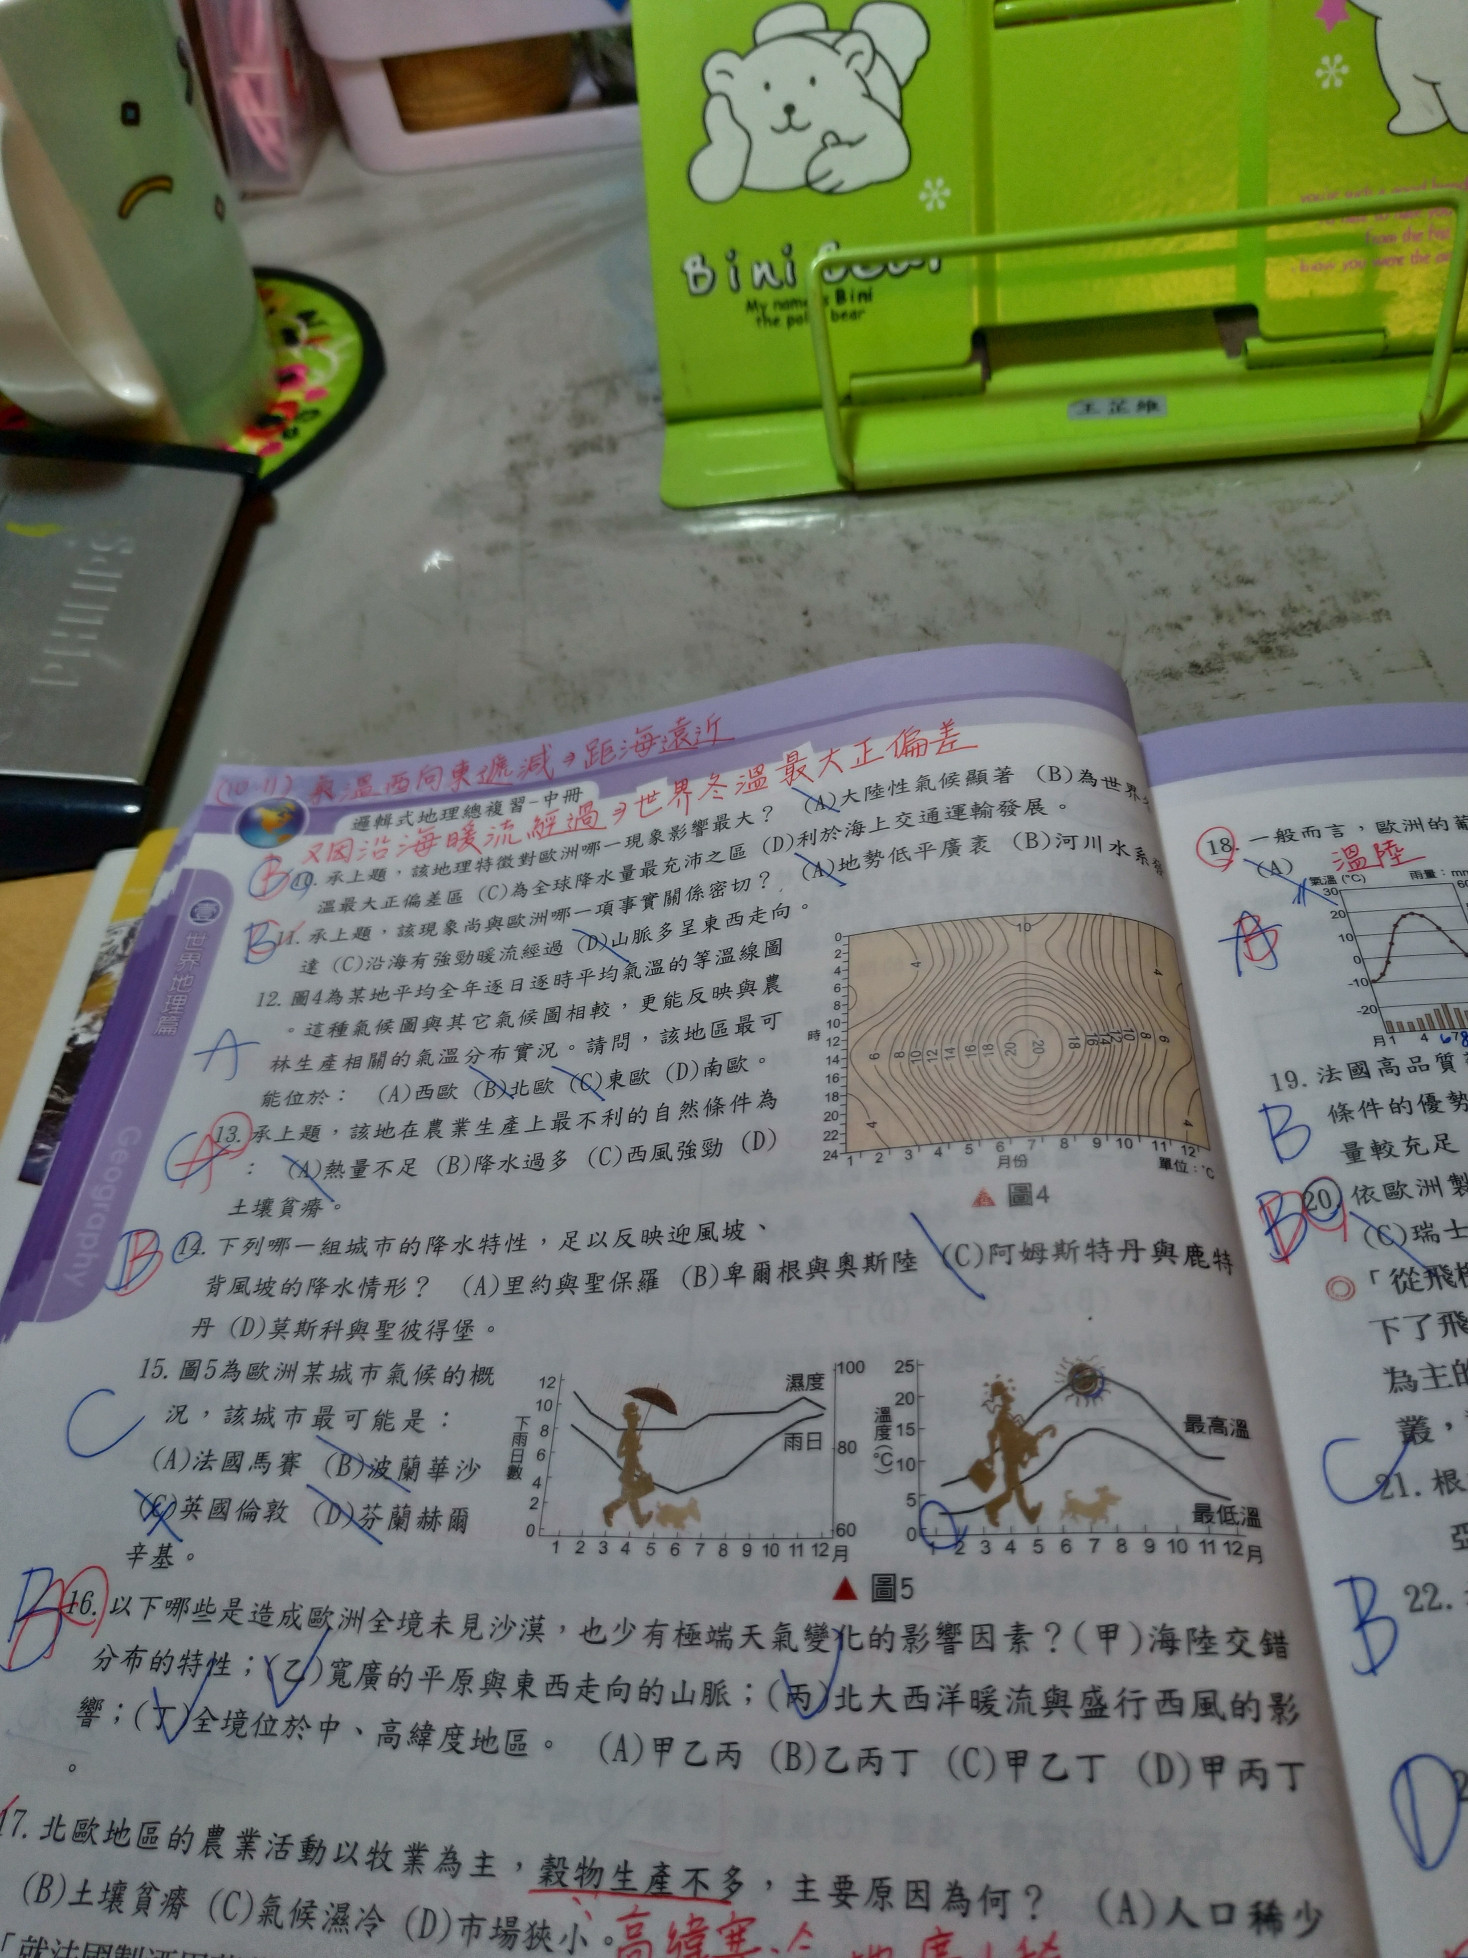 Bini Bear
My name is Bini
the polar bear
王芷維
(10.11) 氣溫西向東遞減→距海遠近
又因沿海暖流經過→世界冬溫最大正偏差
邏輯式地理總複習-中冊
壹
世界地理篇
Geography
B
10. 承上題，該地理特徵對歐洲哪一現象影響最大？ (A)大陸性氣候顯著 (B)為世界
溫最大正偏差區 (C)為全球降水量最充沛之區 (D)利於海上交通運輸發展。
B
11. 承上題，該現象尚與歐洲哪一項事實關係密切？ (A)地勢低平廣袤 (B)河川水系
達 (C)沿海有強勁暖流經過 (D)山脈多呈東西走向。
12. 圖4為某地平均全年逐日逐時平均氣溫的等溫線圖
。這種氣候圖與其它氣候圖相較，更能反映與農
A
林生產相關的氣溫分布實況。請問，該地區最可
能位於： (A)西歐 (B)北歐 (C)東歐 (D)南歐。
C
A
13. 承上題，該地在農業生產上最不利的自然條件為
： (A)熱量不足 (B)降水過多 (C)西風強勁 (D)
土壤貧瘠。
0
2
4
6
8
10
12
14
16
18
20
22
24
時
10
4 4
6 8 10 12 14 16 18 20 20 18 16 14 12 10 8 6
4 4
1 2 3 4 5 6 7 8 9 10 11 12
月份
單位：℃
圖4
B
14. 下列哪一組城市的降水特性，足以反映迎風坡、
背風坡的降水情形？ (A)里約與聖保羅 (B)卑爾根與奧斯陸 (C)阿姆斯特丹與鹿特
丹 (D)莫斯科與聖彼得堡。
C
15. 圖5為歐洲某城市氣候的概
況，該城市最可能是：
(A)法國馬賽 (B)波蘭華沙
(C)英國倫敦 (D)芬蘭赫爾
辛基。
下雨日數
12
10
8
6
4
2
0
濕度
雨日
100
80
60
1 2 3 4 5 6 7 8 9 10 11 12月
溫度(℃)
25
20
15
10
5
0
最高溫
最低溫
1 2 3 4 5 6 7 8 9 10 11 12月
圖5
B
16. 以下哪些是造成歐洲全境未見沙漠，也少有極端天氣變化的影響因素？(甲)海陸交錯
分布的特性；(乙)寬廣的平原與東西走向的山脈；(丙)北大西洋暖流與盛行西風的影
響；(丁)全境位於中、高緯度地區。 (A)甲乙丙 (B)乙丙丁 (C)甲乙丁 (D)甲丙丁
。
17. 北歐地區的農業活動以牧業為主，穀物生產不多，主要原因為何？ (A)人口稀少
(B)土壤貧瘠 (C)氣候濕冷 (D)市場狹小。
高緯寒冷
18. 一般而言，歐洲的葡
(A)
溫陸
氣溫(℃)
雨量：mm
30
20
10
0
-10
-20
60
月1 4 6 7 8
B
19. 法國高品質
條件的優勢
量較充足
B
20. 依歐洲製
(C)瑞士
◎「從飛機
下了飛
為主的
叢，
C
21. 根
亞
B
22.
D